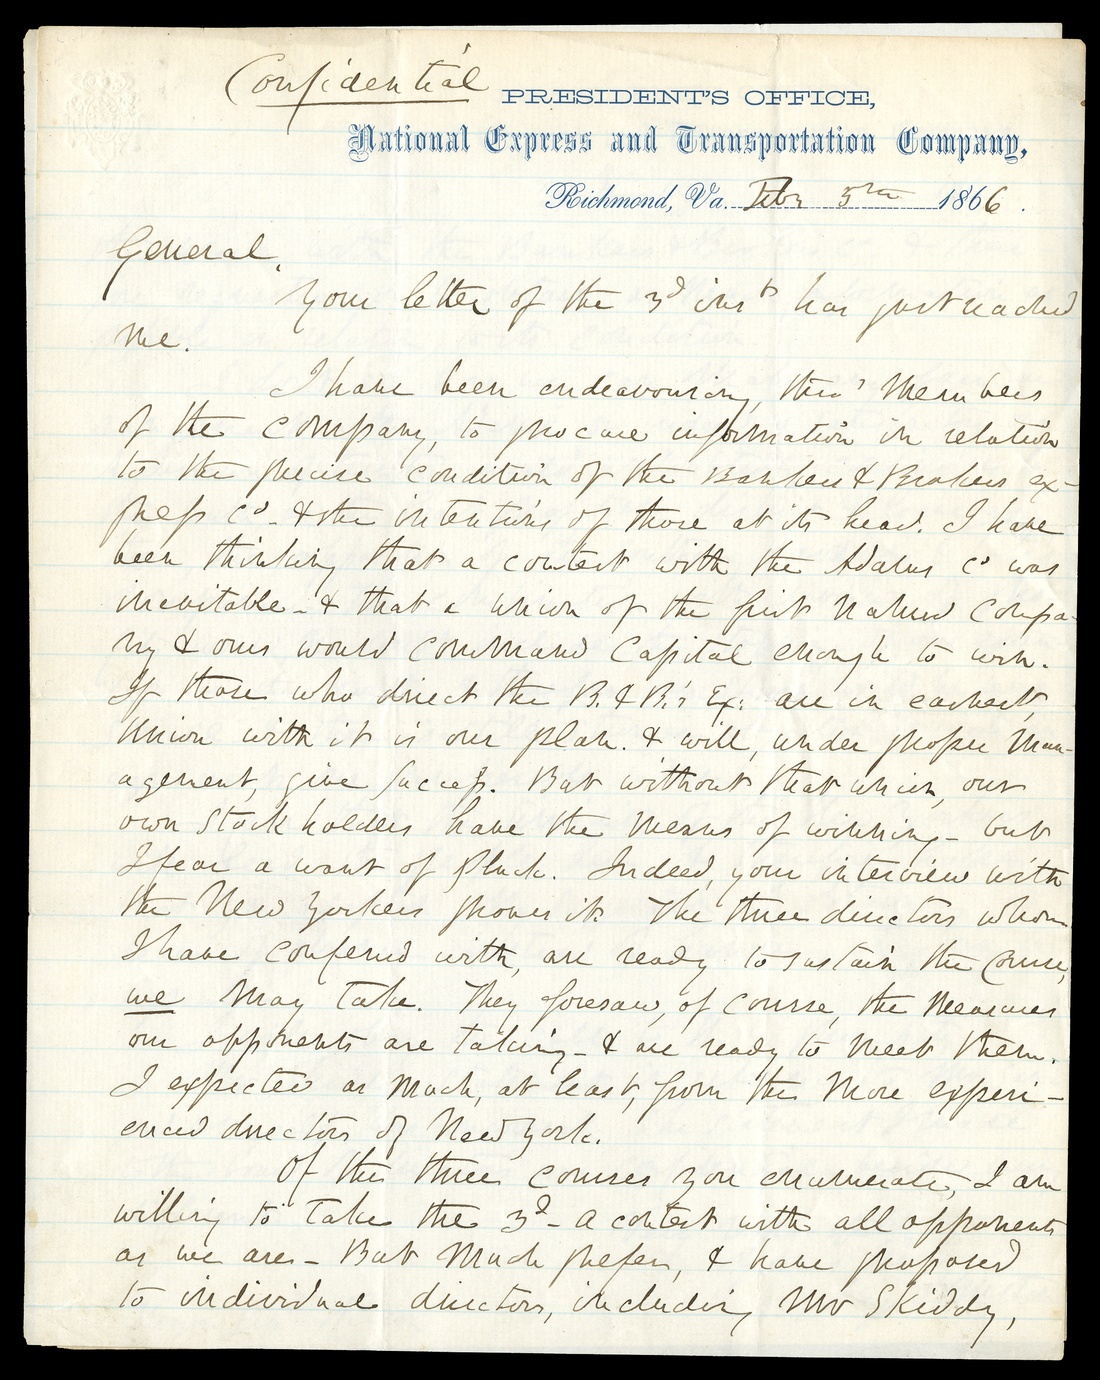 Confidential
PRESIDENT'S OFFICE,
National Express and Transportation Company,
Richmond, Va. Feby 5th 1866.
General,
Your letter of the 3d inst has just reached
me.
I have been endeavouring, thro' members
of the company, to procure information in relation
to the precise condition of the Bankers & Brokers ex-
press Co. & the intentions of those at its head. I have
been thinking that a contest with the Adams Co was
inevitable - & that a union of the first named compa-
ny & ours would command Capital enough to win.
If those who direct the B. & B.'s Ex: are in earnest,
Union with it is our plan. & will, under proper man-
agement, give success. But without that union, our
own Stockholders have the means of winning - but
I fear a want of pluck. Indeed, your interview with
the New Yorkers proves it. The three directors whom
I have confered with, are ready to sustain the course,
we may take. They foresaw, of course, the measures
our opponents are taking - & are ready to meet them.
I expected as much, at least, from the more experi-
enced directors of New York.
Of the three courses you enumerate, I am
willing to take the 3d - a contest with all opponents
as we are - But much prefer, & have proposed
to individual directors, including Mr Skiddy,